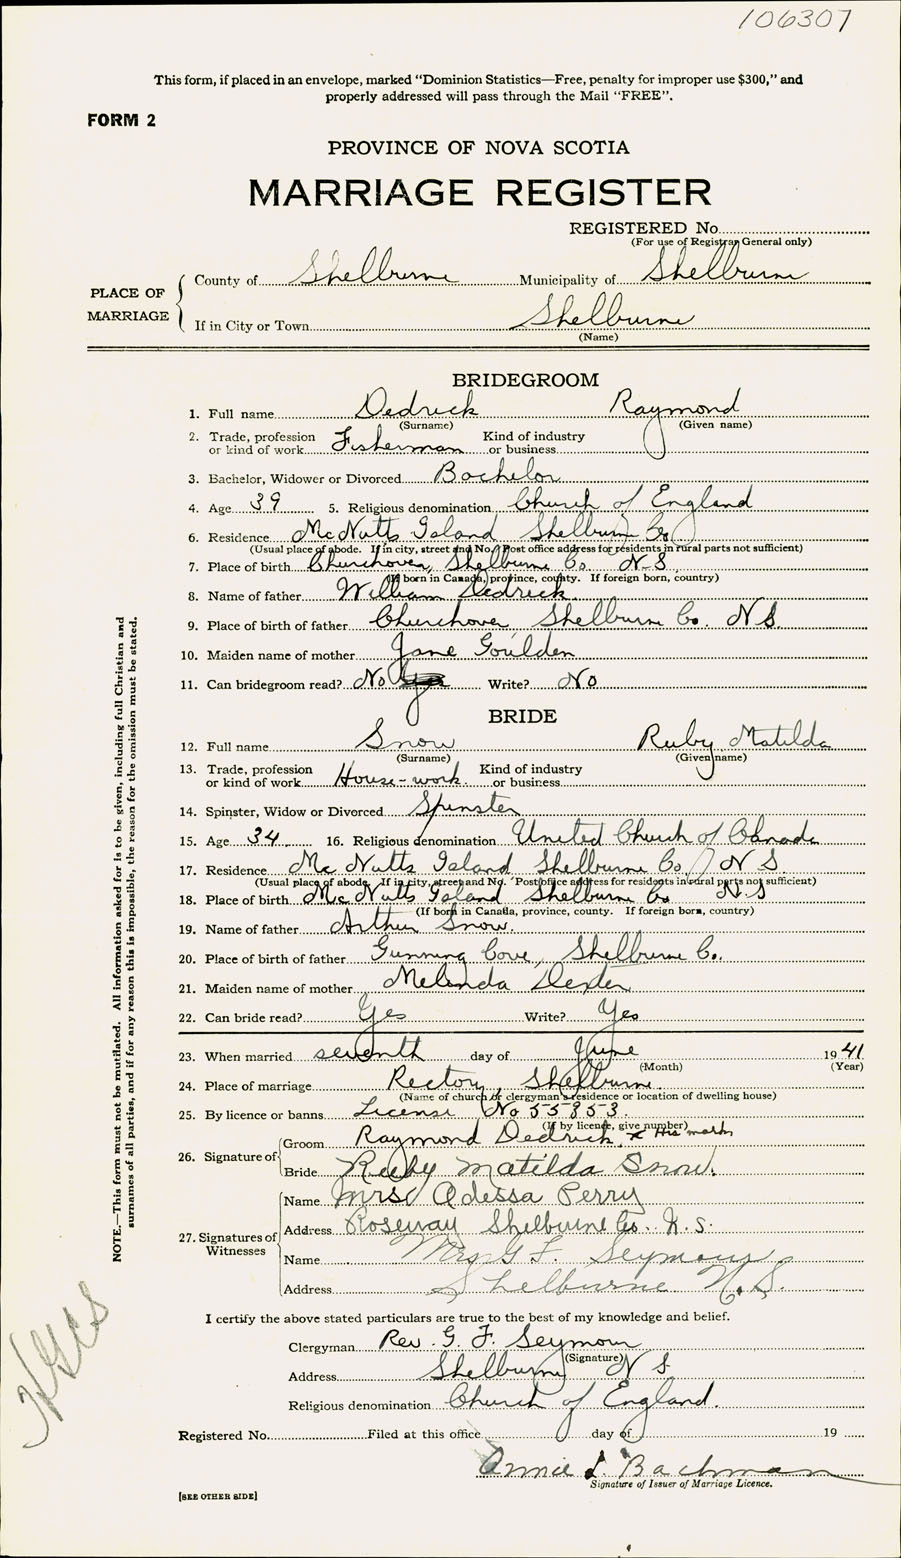 106307
This form, if placed in an envelope, marked "Dominion Statistics—Free, penalty for improper use $300," and
properly addressed will pass through the Mail "FREE".
FORM 2
PROVINCE OF NOVA SCOTIA
MARRIAGE REGISTER
REGISTERED No.
(For use of Registrar General only)
PLACE OF MARRIAGE
County of Shelburne Municipality of Shelburne
If in City or Town Shelburne
(Name)
BRIDEGROOM
1. Full name Dedrick Raymond
(Surname) (Given name)
2. Trade, profession or kind of work Fisherman Kind of industry or business
3. Bachelor, Widower or Divorced Bachelor
4. Age 39 5. Religious denomination Church of England
6. Residence McNutts Island Shelburn Co
(Usual place of abode. If in city, street and No. Post office address for residents in rural parts not sufficient)
7. Place of birth Churchover, Shelburne Co. N.S
(If born in Canada, province, county. If foreign born, country)
8. Name of father William Dedrick
9. Place of birth of father Churchover Shelburn Co. N S.
10. Maiden name of mother Jane Goulden
11. Can bridegroom read? No Write? No
BRIDE
12. Full name Snow Ruby Matilda
(Surname) (Given name)
13. Trade, profession or kind of work House-work. Kind of industry or business
14. Spinster, Widow or Divorced Spinster
15. Age 34 16. Religious denomination United Church of Canada
17. Residence Mc Nutts Island Shelburne Co. N S.
(Usual place of abode. If in city, street and No. Post office address for residents in rural parts not sufficient)
18. Place of birth Mc Nutts Island Shelburne Co N.S
(If born in Canada, province, county. If foreign born, country)
19. Name of father Arthur Snow.
20. Place of birth of father Gunning Cove, Shelburne Co.
21. Maiden name of mother Melinda Dexter
22. Can bride read? Yes Write? Yes
23. When married seventh day of June 1941
(Month) (Year)
24. Place of marriage Rectory, Shelburne.
(Name of church or clergyman's residence or location of dwelling house)
25. By licence or banns License No 55853.
(If by licence, give number)
26. Signature of
Groom Raymond Dedrick. x His mark
Bride Ruby Matilda Snow.
27. Signatures of Witnesses
Name Mrs Adessa Perry
Address Roseway Shelburne Co. N.S.
Name Mrs G F. Seymour
Address Shelburne N.S.
I certify the above stated particulars are true to the best of my knowledge and belief.
Clergyman Rev. G. F. Seymour
(Signature)
Address Shelburne N S.
Religious denomination Church of England.
Registered No. Filed at this office day of 19
Annie L. Bachman
Signature of Issuer of Marriage Licence.
[SEE OTHER SIDE]
NOTE.—This form must not be mutilated. All information asked for is to be given, including full Christian and
surnames of all parties, and if for any reason this is impossible, the reason for the omission must be stated.